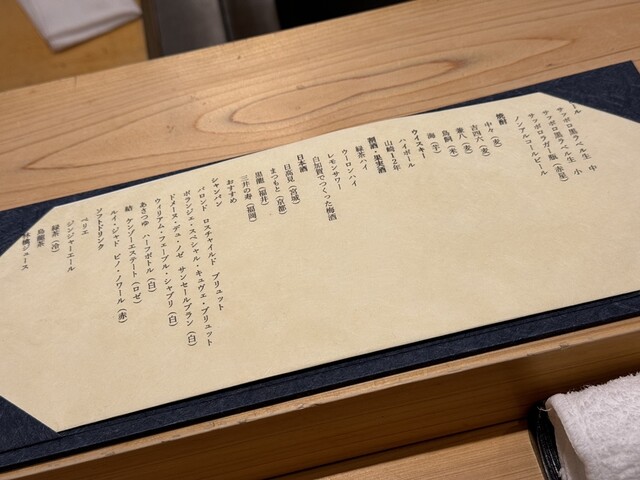 ール
サッポロ黒ラベル生 中
サッポロ黒ラベル生 小
サッポロラガー瓶（赤星）
ノンアルコールビール
焼酎
中々（麦）
吉四六（麦）
兼八（麦）
鳥飼（米）
海（芋）
ウイスキー
ハイボール
山崎12年
割酒・果実酒
緑茶ハイ
ウーロンハイ
レモンサワー
白加賀でつくった梅酒
日本酒
日高見（宮城）
まつもと（京都）
黒龍（福井）
三井の寿（福岡）
おすすめ
シャンパン
バロンド ロスチャイルド ブリュット
ボランジェ・スペシャル・キュヴェ・ブリュット
ドメーヌ・デュ・ノゼ サンセールブラン（白）
ウィリアム・フェーブル・シャブリ（白）
あさつゆ ハーフボトル（白）
結 ケンゾーエステート（ロゼ）
ルイ・ジャド ピノ・ノワール（赤）
ソフトドリンク
ペリエ
ジンジャーエール
緑茶（冷）
烏龍茶
林檎ジュース